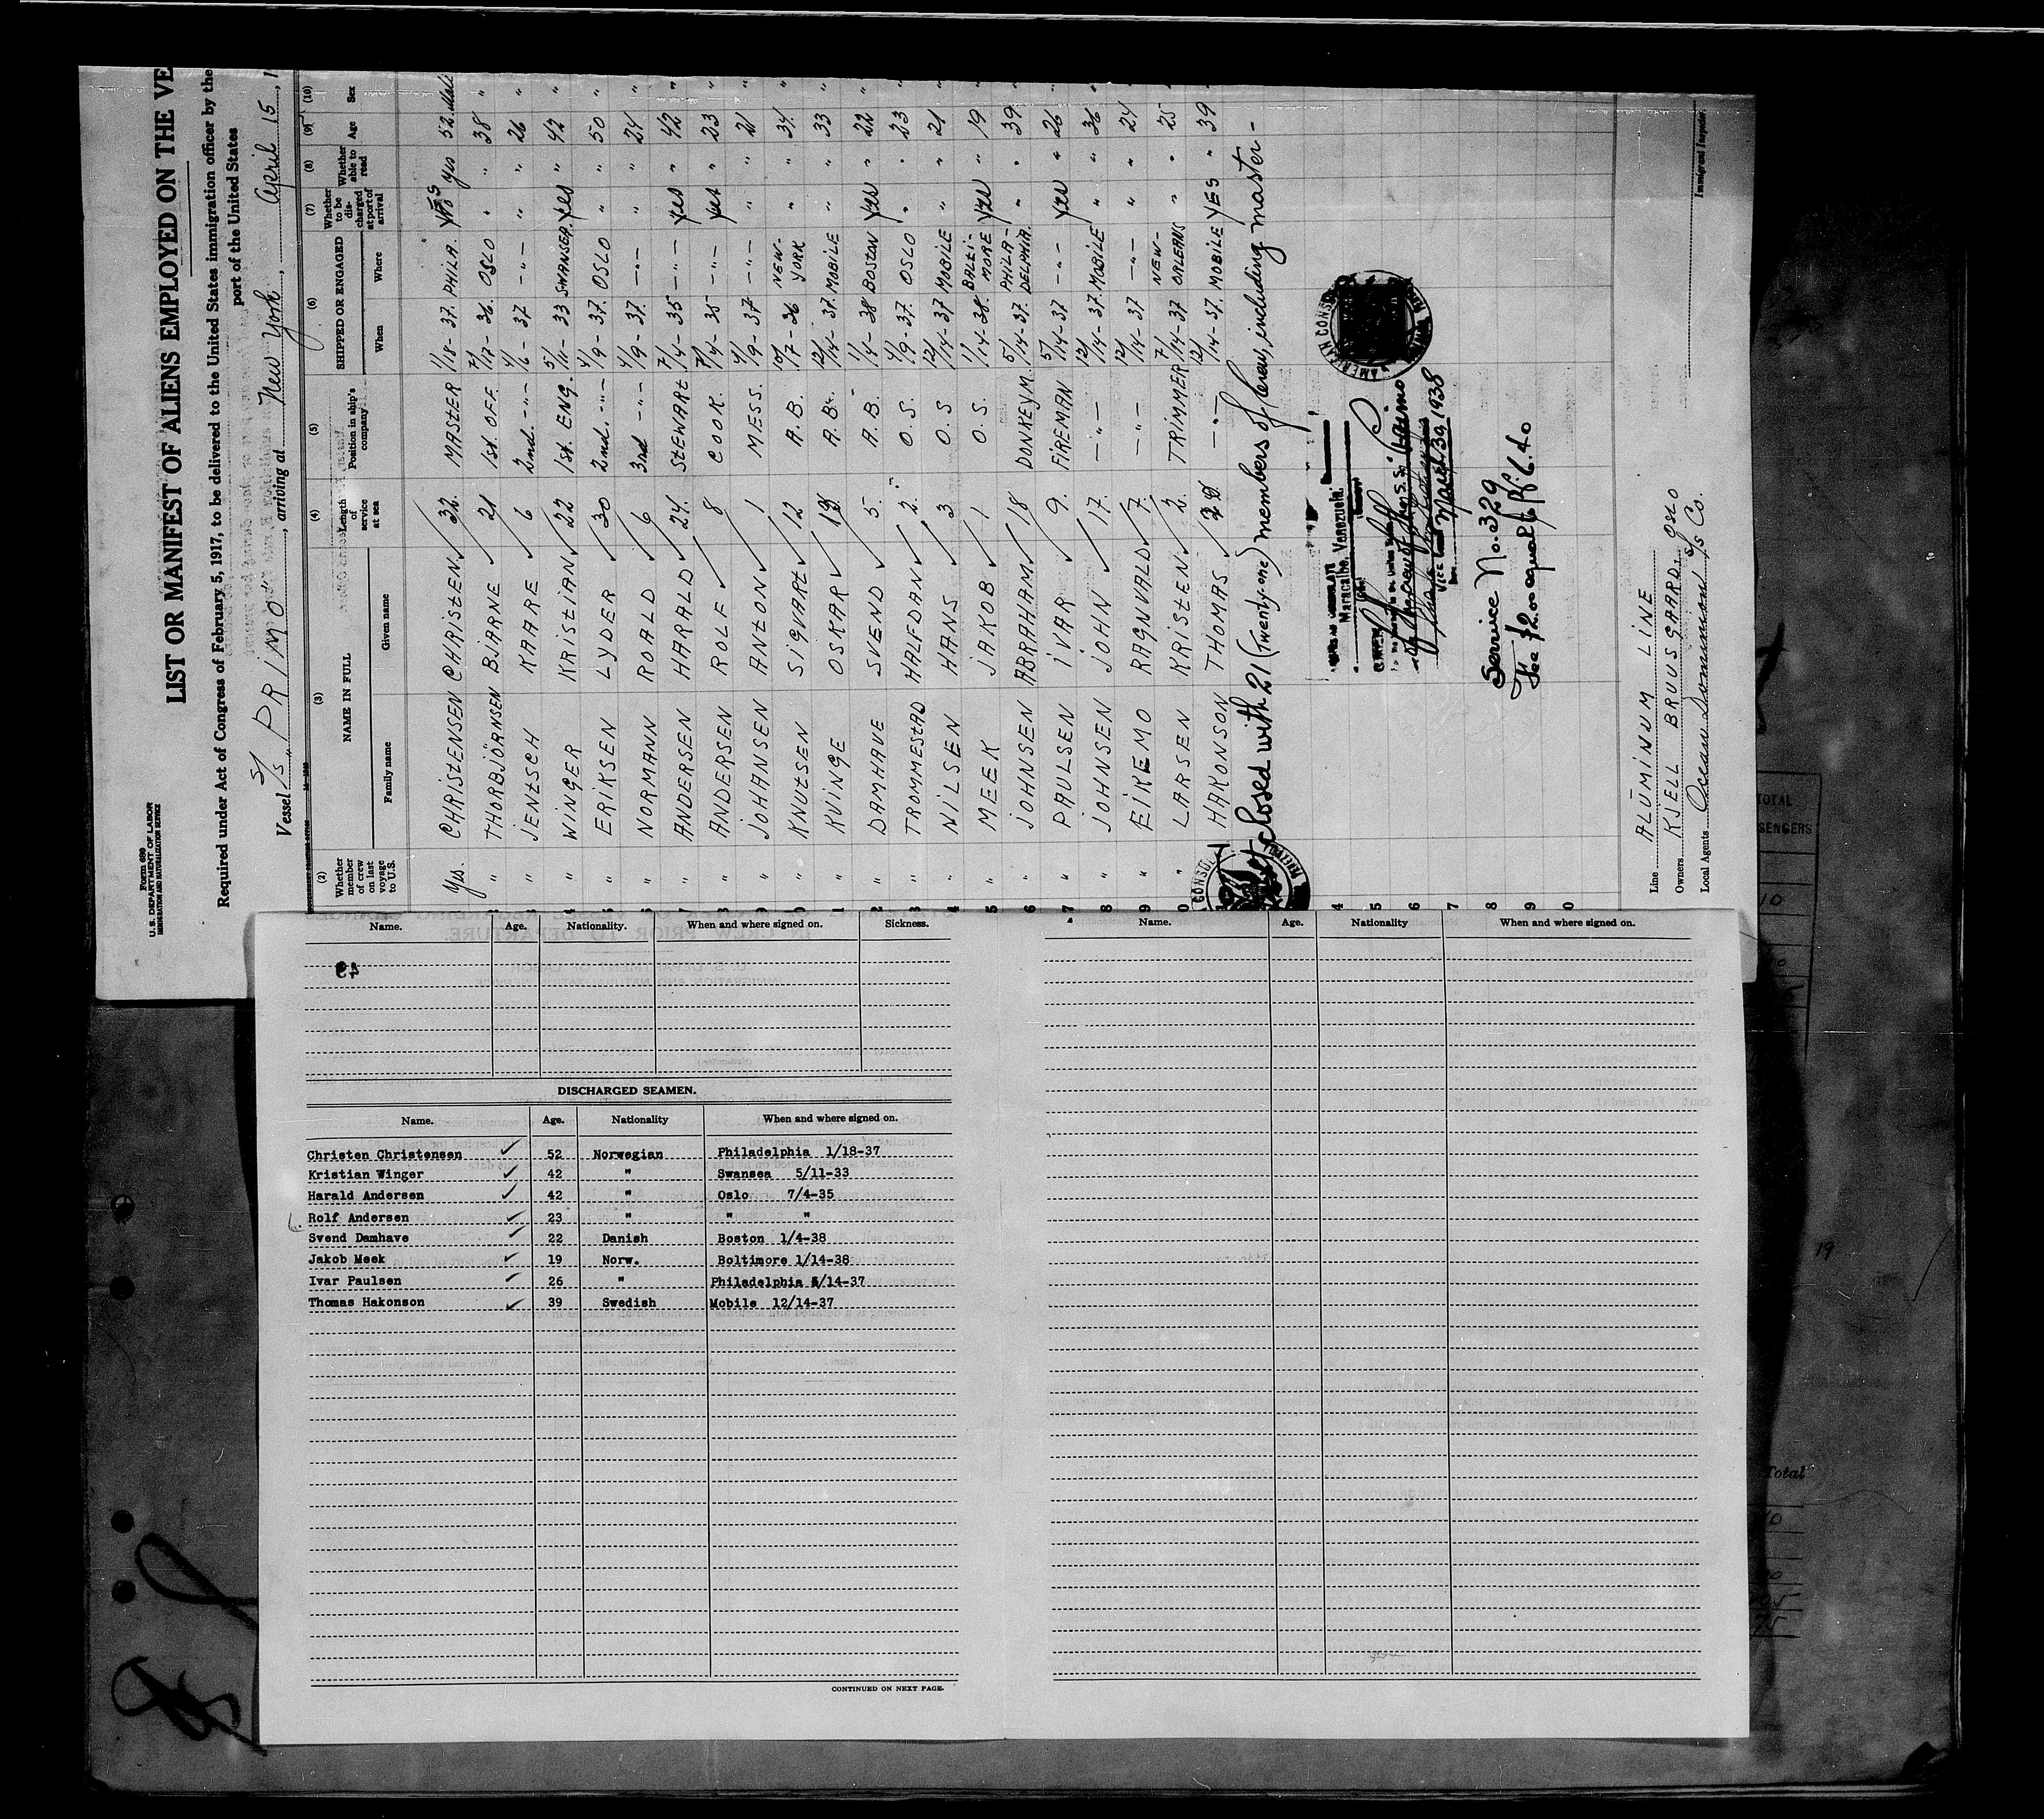 Form 680
U. S. DEPARTMENT OF LABOR
IMMIGRATION AND NATURALIZATION SERVICE
LIST OR MANIFEST OF ALIENS EMPLOYED ON THE VE
Required under Act of Congress of February 5, 1917, to be delivered to the United States immigration officer by the
port of the United States
Vessel S/S "PRIMO", arriving at New York, April 15, 1
(2) (3) (4) (5) (6) (7) (8) (9) (10)
Whether member of crew on last voyage to U.S. NAME IN FULL Family name Given name Length of service at sea Position in ship's company SHIPPED OR ENGAGED When Where Whether to be discharged at port of arrival Whether able to read Age Sex
Yes. CHRISTENSEN CHRISTEN 32. MASTER 1/18-37. PHILA. YES yes 52 Male
" THORBJÖRNSEN BJARNE 21 1st. OFF. 7/17-36. OSLO " " 38 "
" JENTSCH KAARE 6 2nd. -"- 4/6-37 -"- " " 26 "
" WINGER KRISTIAN 22 1st. ENG. 5/11-33 SWANSEA. yes " 42 "
" ERIKSEN LYDER 30 2nd. -"- 4/9-37. OSLO " " 50 "
" NORMANN ROALD 6 3rd -"- 4/9-37. -"- " " 24 "
" ANDERSEN HARALD 24. STEWART 7/4-35 -"- yes " 42 "
" ANDERSEN ROLF 8 COOK. 7/4-35 -"- yes " 23 "
" JOHANSEN ANTON 1 MESS. 4/9-37 -"- " " 21 "
" KNUTSEN SIGVART 12 A.B. 10/17-36 NEW-YORK " " 34. "
" KVINGE OSKAR A.B. 12/14-37. MOBILE " " 33 "
" DAMHAVE SVEND 5. A.B. 1/4-38 BOSTON yes " 22 "
" TROMMESTAD HALFDAN 2. O.S. 4/9-37. OSLO " " 23 "
" NILSEN HANS 3 O.S 12/14-37 MOBILE " " 21 "
" MEEK JAKOB 1 O.S. 1/14-38. BALTI-MORE yes " 19 "
" JOHNSEN ABRAHAM 18 DONKEYM. 5/14-37. PHILA-DELPHIA. " " 39 "
" PAULSEN IVAR 9. FIREMAN 5/14-37 -"- yes " 26 "
" JOHNSEN JOHN 17. -"- 12/14-37. MOBILE " " 36 "
" EIKEMO RAGNVALD 7. -"- 12/14-37 -"- " " 24 "
" LARSEN KRISTEN 2. TRIMMER 7/14-37 NEW-ORLEANS " " 25 "
" HAKONSON THOMAS -"- 12/14-37. MOBILE YES " 39 "
closed with 21 (Twenty-one) members of crew, including master-
AMERICAN CONSUL
Maracaibo, Venezuela.
March 30, 1938
Service No. 329
Fee $2.00 equal to
Line ALUMINUM LINE
Owners KJELL BRUUSGAARD, OSLO
Local Agents Ocean Dominion S/S Co.
Immigrant Inspector.
Name. Age. Nationality. When and where signed on. Sickness.
DISCHARGED SEAMEN.
Name. Age. Nationality When and where signed on.
Christen Christensen 52 Norwegian Philadelphia 1/18-37
Kristian Winger 42 " Swansea 5/11-33
Harald Andersen 42 " Oslo 7/4-35
Rolf Andersen 23 " " "
Svend Damhave 22 Danish Boston 1/4-38
Jakob Meek 19 Norw. Boltimore 1/14-38
Ivar Paulsen 26 " Philadelphia 5/14-37
Thomas Hakonson 39 Swedish Mobile 12/14-37
CONTINUED ON NEXT PAGE.
Name. Age. Nationality When and where signed on.
TOTAL
SENGERS
10
19
Total
10